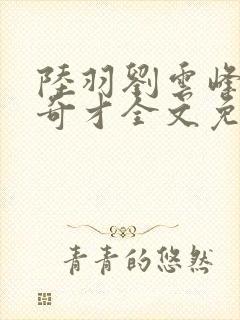 陸羽劉雲峰
奇才全文免
青青的悠然